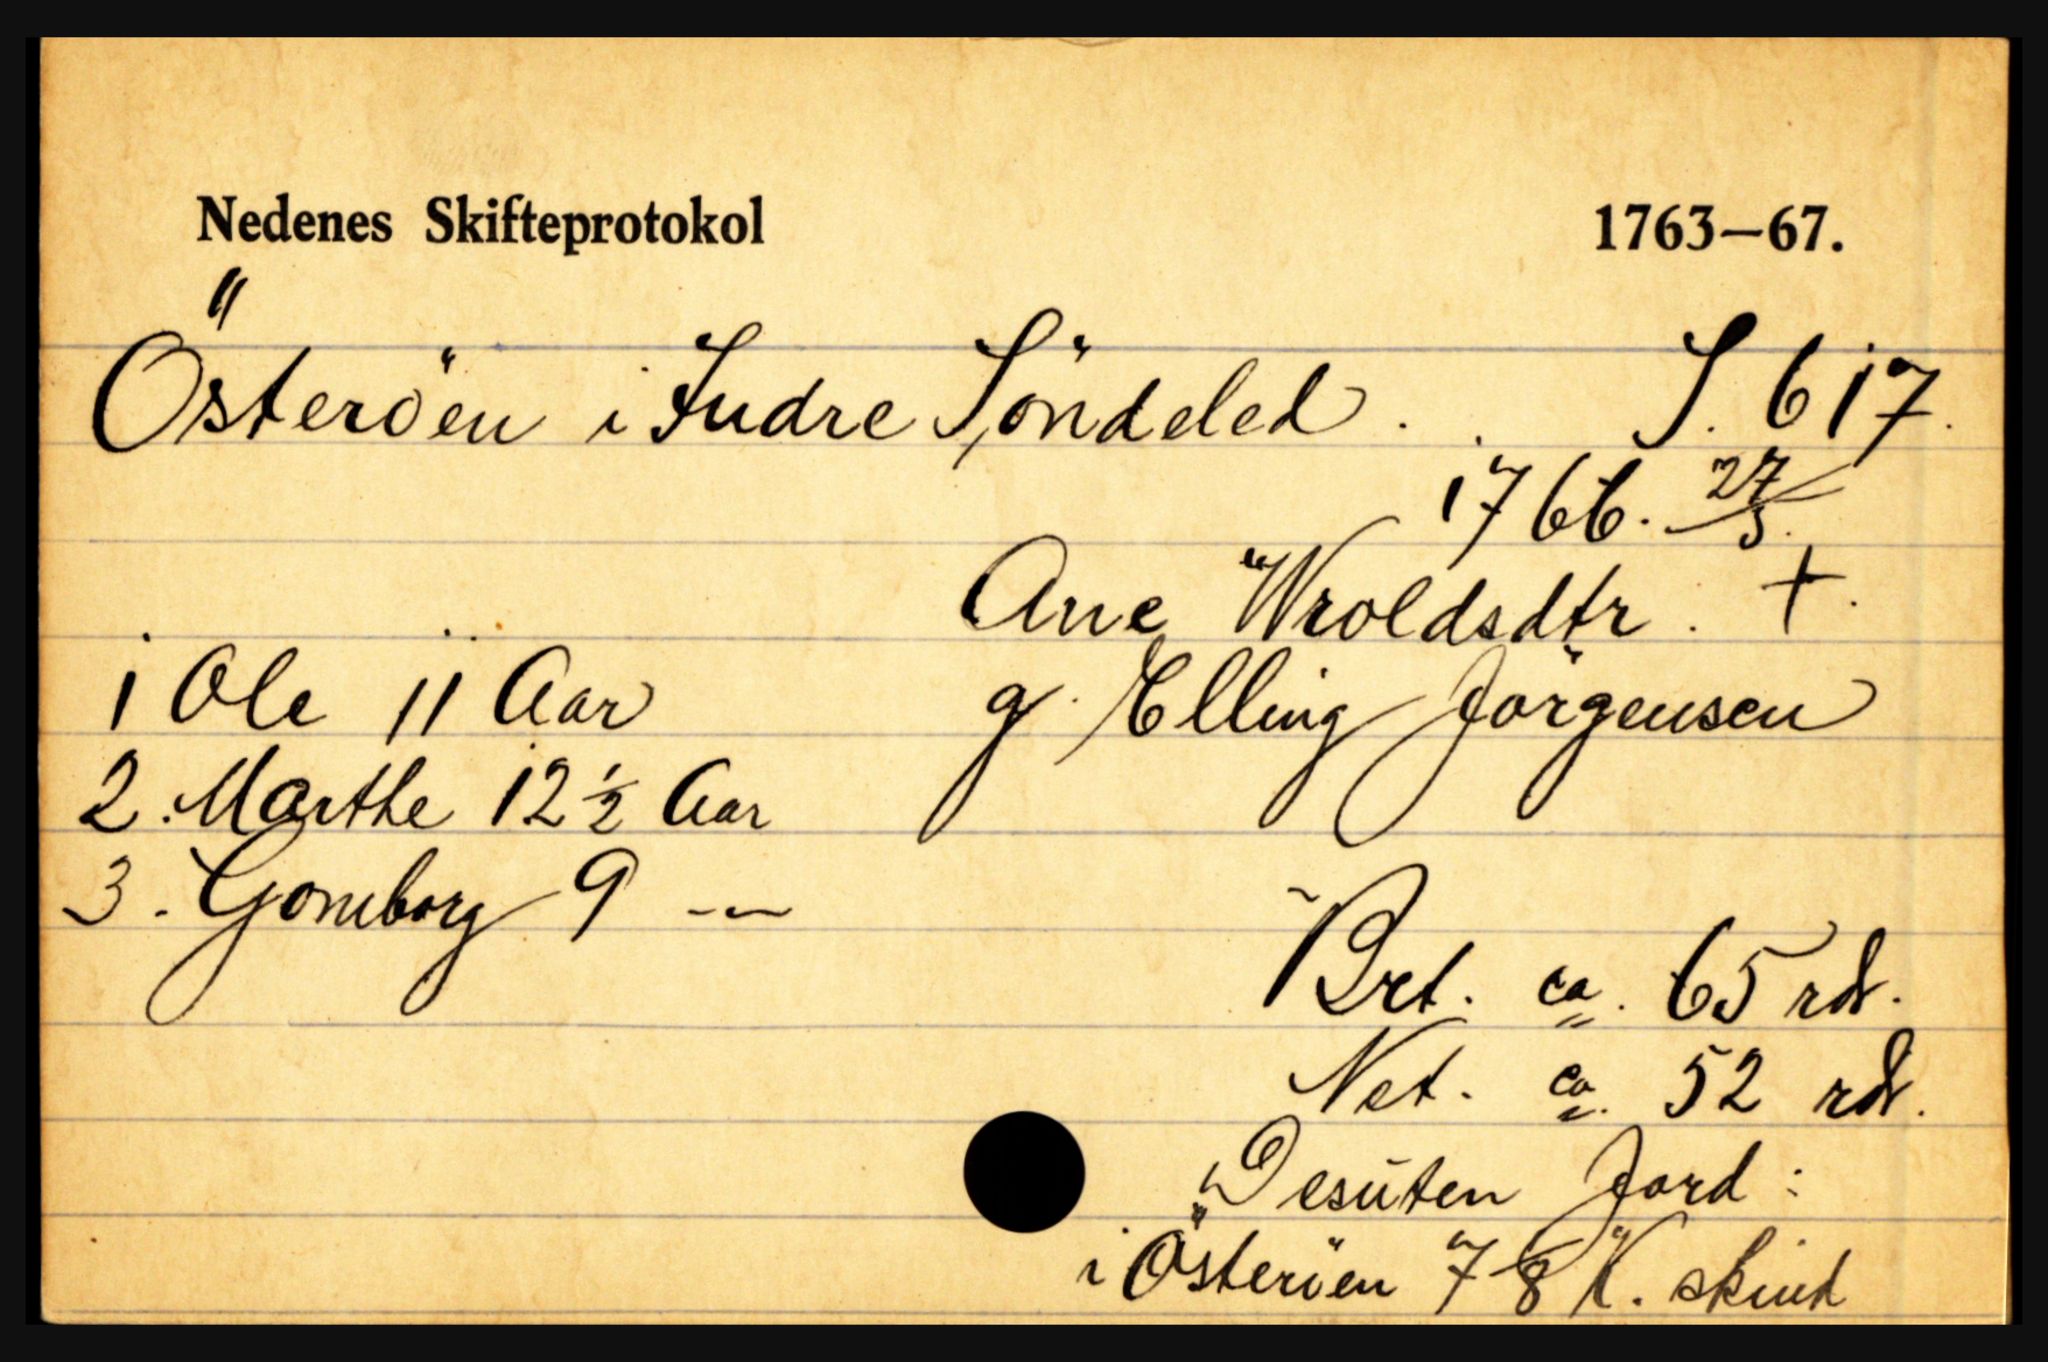 Nedenes Skifteprotokol 1763—67.
Österöen i Indre Söndeled. S. 617.
1766. 27/5.
Ane Wroldsdtr. +.
1 Ole 11 Aar g. Elling Jörgensen
2. Marthe 12 ½ Aar
3. Gomborg 9 —
Brt. ca. 65 rdr.
Net. ca. 52 rdr.
Desuten Jord:
i Österöen 7/8 K. skind